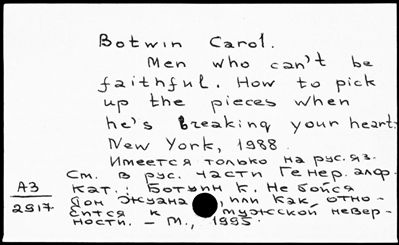 Botwin Carol.
Men who can't be
faithful. How to pick
up the pieces when
he's breaking your heart.
New York, 1988.
Имеется только на рус. яз.
См. в рус. части Генер. алф.
кат.: Ботвин К. Не бойся
АЗ
Дон Жуана, или Как отно-
2817
сится к мужской невер-
ности. – М., 1995.